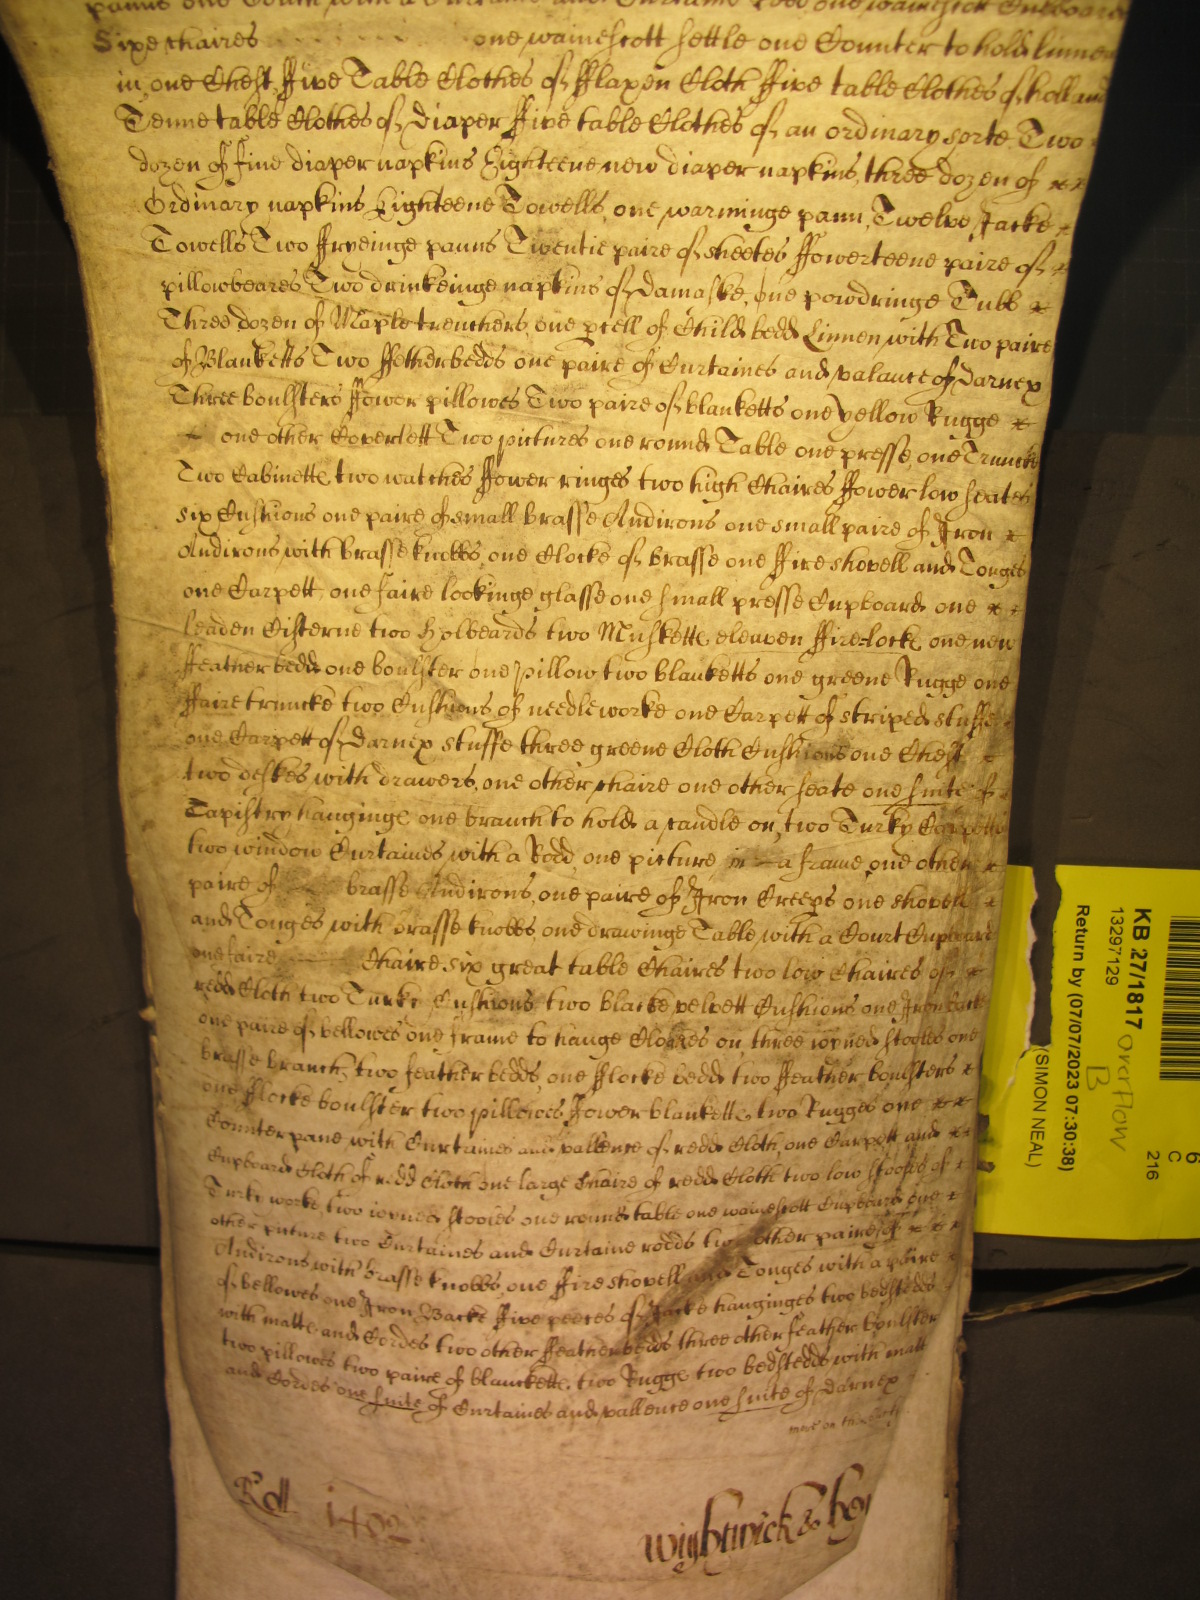 panns one Couch with a Curtaine and Curtaine Rodd one wainescott Cupboard
Sixe chaires one wainescott settle one Counter to hold linnen
in, one Chest, ffive Table Clothes of fflaxen Cloth ffive table Clothes of holland
Tenne table Clothes of Diaper ffive table Clothes of an ordinary sorte, Two
dozen of fine diaper napkins Eighteene new diaper napkins, three dozen of
Ordinary napkins Eighteene Towells, one warminge pann, Twelve Jacke
Towells Two ffryeinge panns Twentie paire of sheetes ffowerteene paire of
pillowbeares Two drinkeinge napkins of Damaske, one powdringe Tubb
Three dozen of Maple trenchers, one pcell of Child bedd Linnen with Two paire
of Blanketts Two ffetherbedds one paire of Curtaines and valance of Darnex
Three boulsters ffower pillowes Two paire of blanketts one yellow Rugge
one other Coverlett Two pictures one round Table one presse, one Truncke
Two Cabinette, two watches ffower ringes two high Chaires ffower low seates
six Cushions one paire of small brasse Andirons one small paire of Iron
Andirons with brasse knobbs, one Clocke of brasse one ffire shovell and Tonges
one Carpett, one faire lookinge glasse one small presse Cupboard one
leaden Cisterne two Holbeards two Muskette, eleaven ffire-locke, one new
ffeather bedd one boulster one pillow two blanketts one greene Rugge one
ffaire truncke two Cushions of needleworke one Carpett of striped stuffe
one Carpett of Darnex stuffe three greene Cloth Cushions one Chest
two deskes with drawers, one other chaire one other seate one suite of
Tapistry hanginge, one branch to hold a candle on, two Turky Carpette
two window Curtaines with a Rodd one picture in a frame, one other
paire of brasse Andirons, one paire of Iron Creeps one shovell
and Tonges with brasse knobbs, one drawinge Table, with a Court Cupboard
one faire Chaire six great table Chaires two low Chaires of
redd Cloth two Turky Cushions, two blacke velvett Cushions one Iron backe
one paire of bellowes one frame to hange Clothes on three ioyned stooles one
brasse branch, two feather bedds, one fflocke bedd two ffeather boulsters
one fflocke boulster two pillowes ffower blankette, two Rugges one
Counterpane with Curtaines and vallence of redd Cloth, one Carpett and
Cupboard Cloth of redd Cloth one large Chaire of redd Cloth two low stooles of
Turky worke, two ioyned stooles one round table one wainescott Cupboard one
other picture two Curtaines and Curtaine rodds two other paire of
Andirons with brasse knobbs, one ffire shovell and Tonges with a paire
of bellowes one Iron Backe ffive peeces of Jacke hanginges two bedstedds
with matte, and Cordes two other ffeather bedds three other feather boulster
two pillowes two paire of blankette, two Rugge, two bedstedds with matt
and Cordes one suite of Curtaines and vallence one suite of Darnex
more on the
Roll 1402
Wightwick &
KB 27/1817 overflow
B
13297129
Return by (07/07/2023 07:30:38)
(SIMON NEAL)
6
C
216